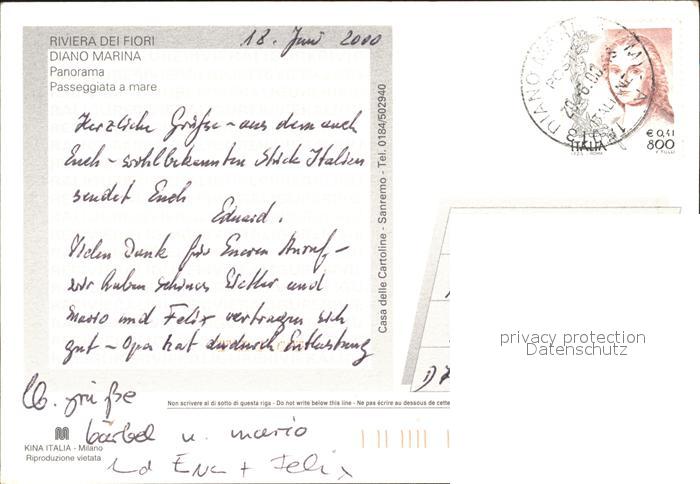 RIVIERA DEI FIORI
DIANO MARINA
Panorama
Passeggiata a mare
18. Juni 2000
Herzliche Grüße – aus dem auch
Euch – wohlbekannten Stück Italien
sendet Euch
Eduard.
Vielen Dank für Eueren Anruf, –
wir haben schönes Wetter und
Mario und Felix vertragen sich
gut – Opa hat dadurch Entlastung
lb. grüße
bärbel u. mario
und Eva + Felix
Casa delle Cartoline - Sanremo - Tel. 0184/502940
Non scrivere al di sotto di questa riga - Do not write below this line - Ne pas écrire au dessous de cette
KINA ITALIA - Milano
Riproduzione vietata
DIANO MARINA
20.6.00
€ 0,41
800
ITALIA
privacy protection
Datenschutz